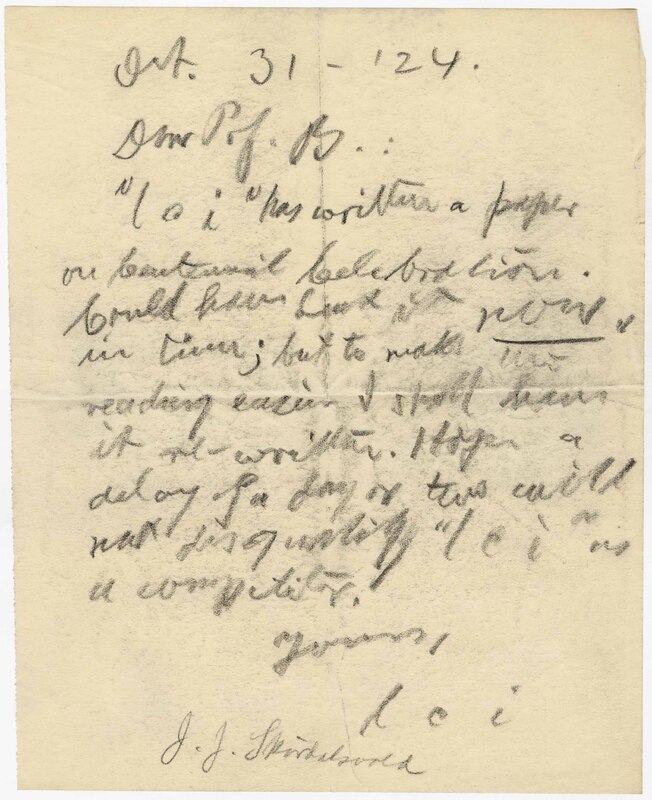 Oct. 31 - '24.
Dear Prof. B.:
"l c i" has written a paper
on Centennial Celebration.
Could have had it now,
in time; but to make the
reading easier I shall have
it re-written. Hope a
delay of a day or two will
not disqualify "l c i" as
a competitor.
Yours,
l c i
J. J. Skørdalsvold